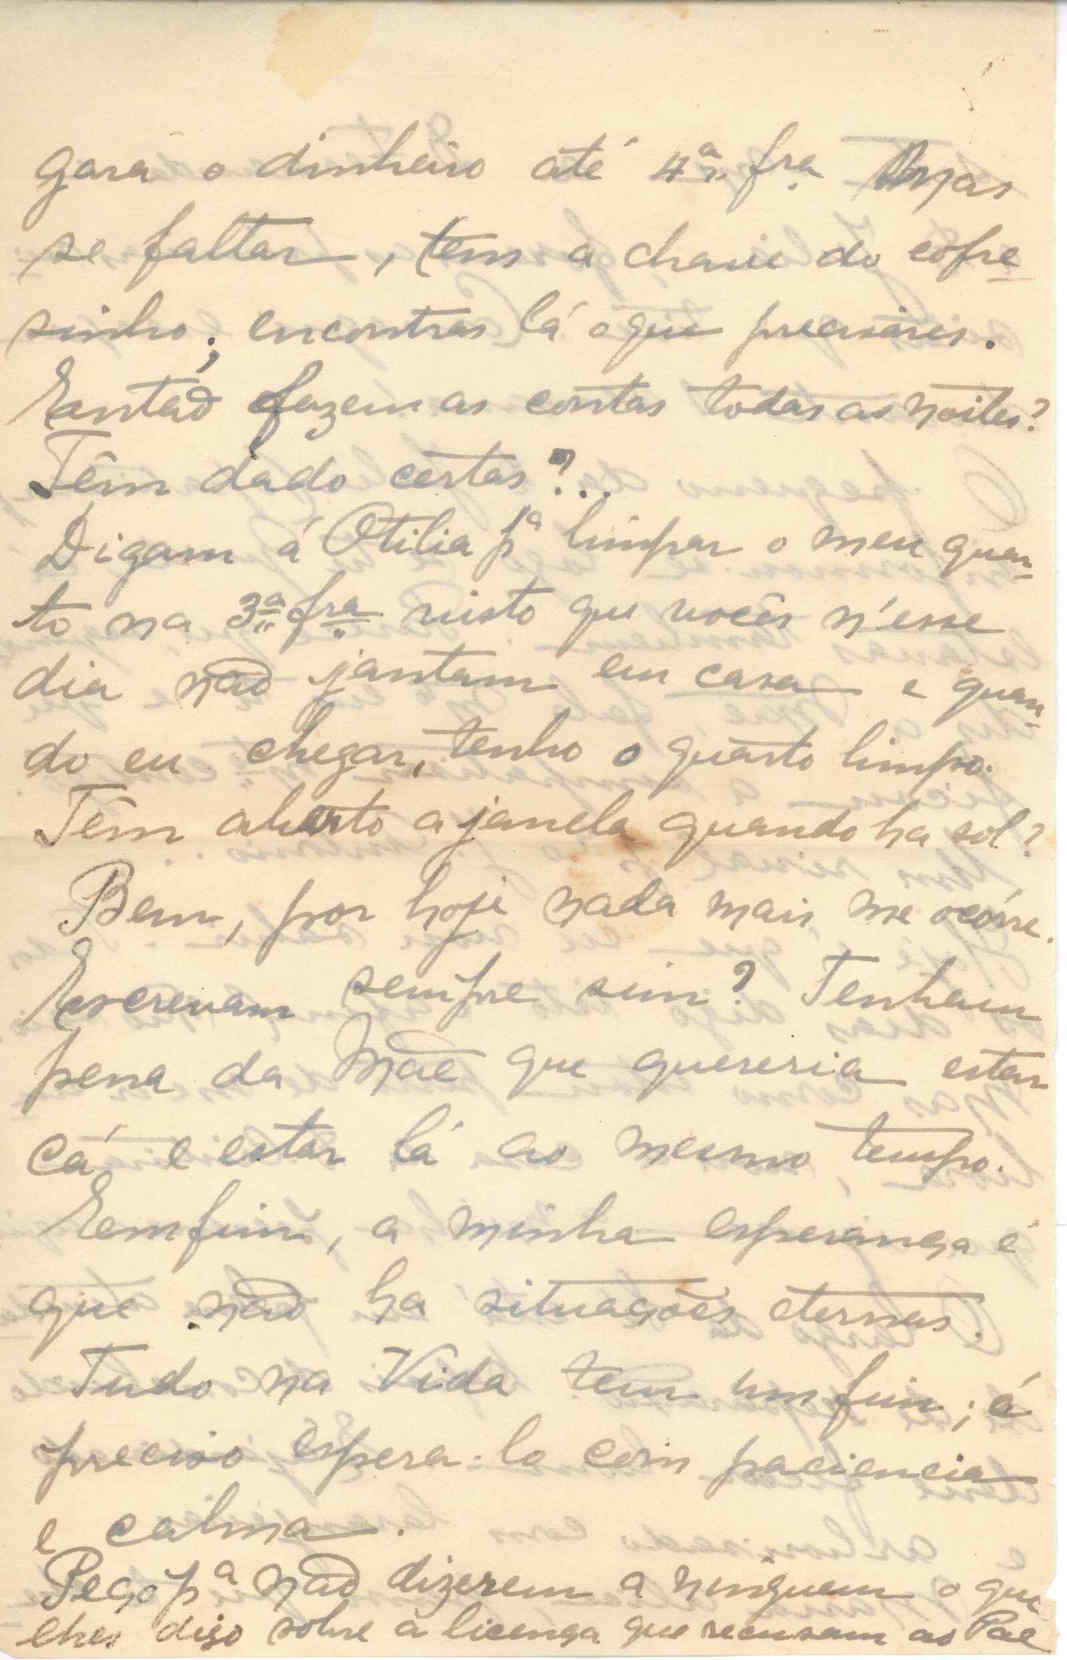 gara o dinheiro até 4ª fra Mas
se faltar, tens a chave do cofre
sinho; encontras lá o que precisares.
Então fazem as contas todas as noites?
Têm dado certas?..
Digam á Otilia pª limpar o meu quar-
to na 3ª fra visto que vocês n'esse
dia não jantam em casa e quan-
do eu chegar, tenho o quarto limpo.
Têm aberto a janela quando ha sol?
Bem, por hoje nada mais me ocórre.
Escrevam sempre sim? Tenham
pena da Mãe que quereria estar
cá e estar lá ao mesmo tempo.
Emfim, a minha esperança é
que não ha situações eternas.
Tudo na Vida tem um fim; é
preciso espera-lo com paciencia
e calma.
Peço pª não dizerem a ninguem o que
lhes digo sobre a licença que recusam ao Pae